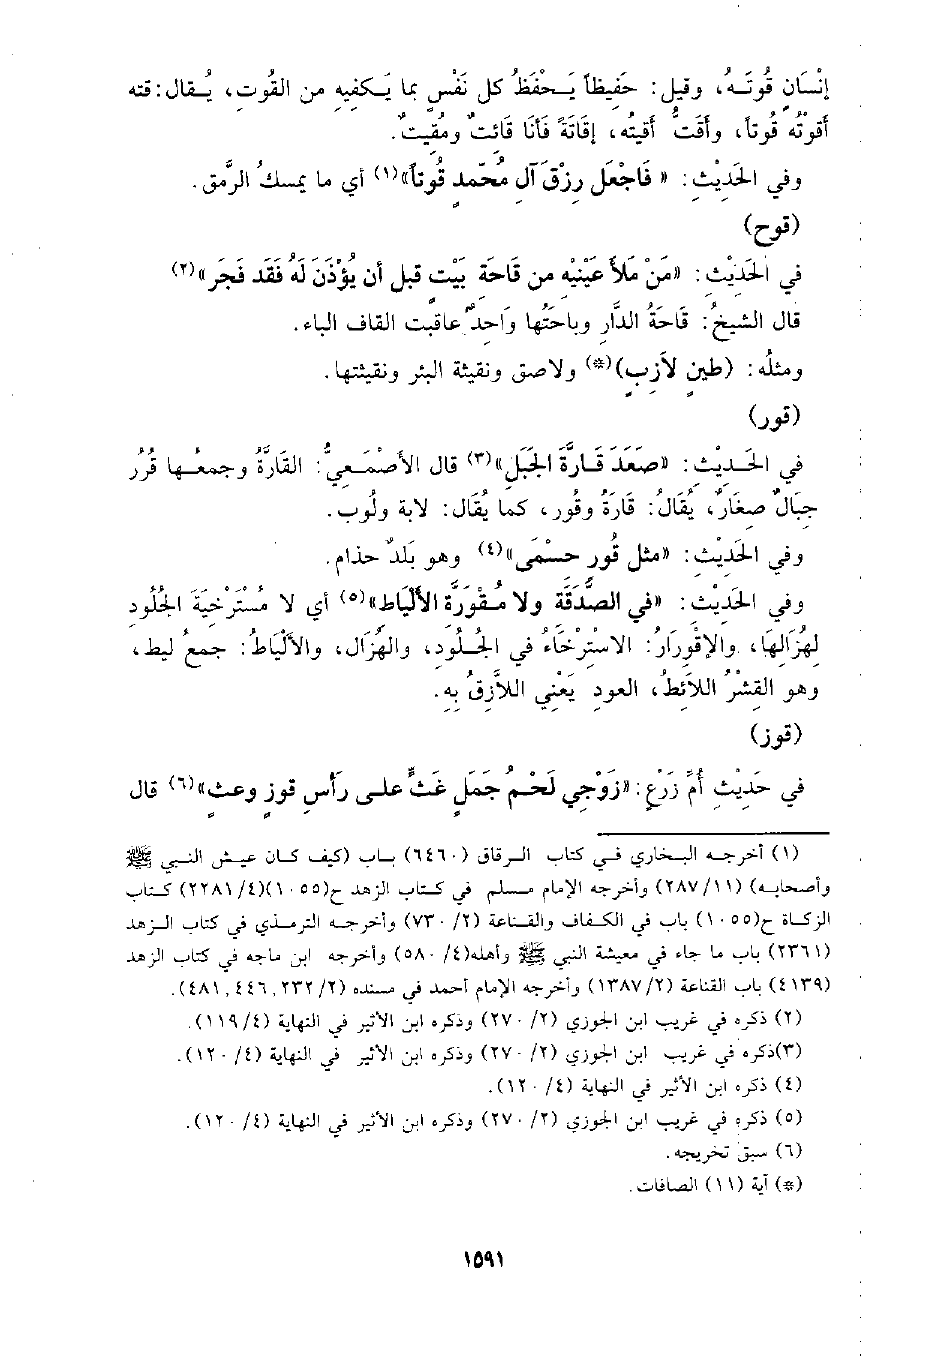 إنْسَانٍ قُوتَـهُ، وقيل: حَفيظاً يَـحْفَظُ كل نَفْسٍ بما يَـكفيهِ من القُوتِ، يُـقال: قته
أقوتُهُ قُوتاً، وأقَتُّ أقيتُه، إقَاتَةً فَأنَا قَائتٌ ومُقيتٌ.
وفي الحَدِيْثِ: « فَاجْعَل رِزْقَ آلِ مُحَمّدٍ قُوتاً»(١) أي ما يمسكُ الرَّمق.
(قوح)
في الحَدِيْثِ: «مَنْ مَلأَ عَيْنَيْه من قَاحَة بَيْتٍ قبل أن يُؤْذَنَ لَهُ فَقَد فَجَر»(٢)
قال الشيخُ: قَاحَةُ الدَّارِ وباحَتُها وَاحِدٌ عاقبت القاف الباء.
ومثلُه: (طينٍ لأَزِبٍ)(*) ولاصق ونقيثة البئر ونقيثتها.
(قور)
في الحَدِيْثِ: «صَعَدَ قَـارَّةَ الجَبَلِ»(٣) قال الأصْمَعيُّ: القَارَّةُ وجمعُها قُرُر
جِبَالٌ صِغَارٌ، يُقَالُ: قَارَةُ وقُور، كما يُقَال: لابة ولُوب.
وفي الحَدِيْثِ: «مثل قُور حِسْمَى»(٤) وهو بَلَدٌ حذام.
وفي الحَدِيْثِ: «في الصَّدَقَة ولا مُـقْوَرَّة الأَلْيَاط»(٥) أي لا مُسْتَرْخِيَةَ الجُلُودِ
لِهُزَالِهَا، والإقْورَارُ: الاسْتِرْخَاءُ في الجُلُودِ، والهُزَال، والأَلْيَاطُ: جمعُ ليط،
وهو القِشْرُ اللائِطُ، العود يَعْنِي اللاَّزِقُ بِهِ.
(قوز)
في حَدِيْثِ أُمِّ زَرْعٍ: «زَوْجِي لَحْمُ جَمَلٍ غَثٌّ على رَأسِ قوزٍ وعث»(٦) قال
(١) أخرجه البخاري في كتاب الرقاق (٦٤٦٠) باب (كيف كان عيش النبي ﷺ
وأصحابه) (٢٨٧/١١) وأخرجه الإمام مسلم في كتاب الزهد ح(١٠٥٥)(٢٢٨١/٤) كتاب
الزكاة ح(١٠٥٥) باب في الكفاف والقناعة (٧٣٠/٢) وأخرجه الترمذي في كتاب الزهد
(٢٣٦١) باب ما جاء في معيشة النبي ﷺ وأهله(٥٨٠/٤) وأخرجه ابن ماجه في كتاب الزهد
(٤١٣٩) باب القناعة (١٣٨٧/٢) وأخرجه الإمام أحمد في مسنده (٢٣٢/٢, ٤٤٦, ٤٨١).
(٢) ذكره في غريب ابن الجوزي (٢٧٠/٢) وذكره ابن الأثير في النهاية (١١٩/٤).
(٣)ذكره في غريب ابن الجوزي (٢٧٠/٢) وذكره ابن الأثير في النهاية (١٢٠/٤).
(٤) ذكره ابن الأثير في النهاية (١٢٠/٤).
(٥) ذكره في غريب ابن الجوزي (٢٧٠/٢) وذكره ابن الأثير في النهاية (١٢٠/٤).
(٦) سبق تخريجه.
(*) آية (١١) الصافات.
١٥٩١